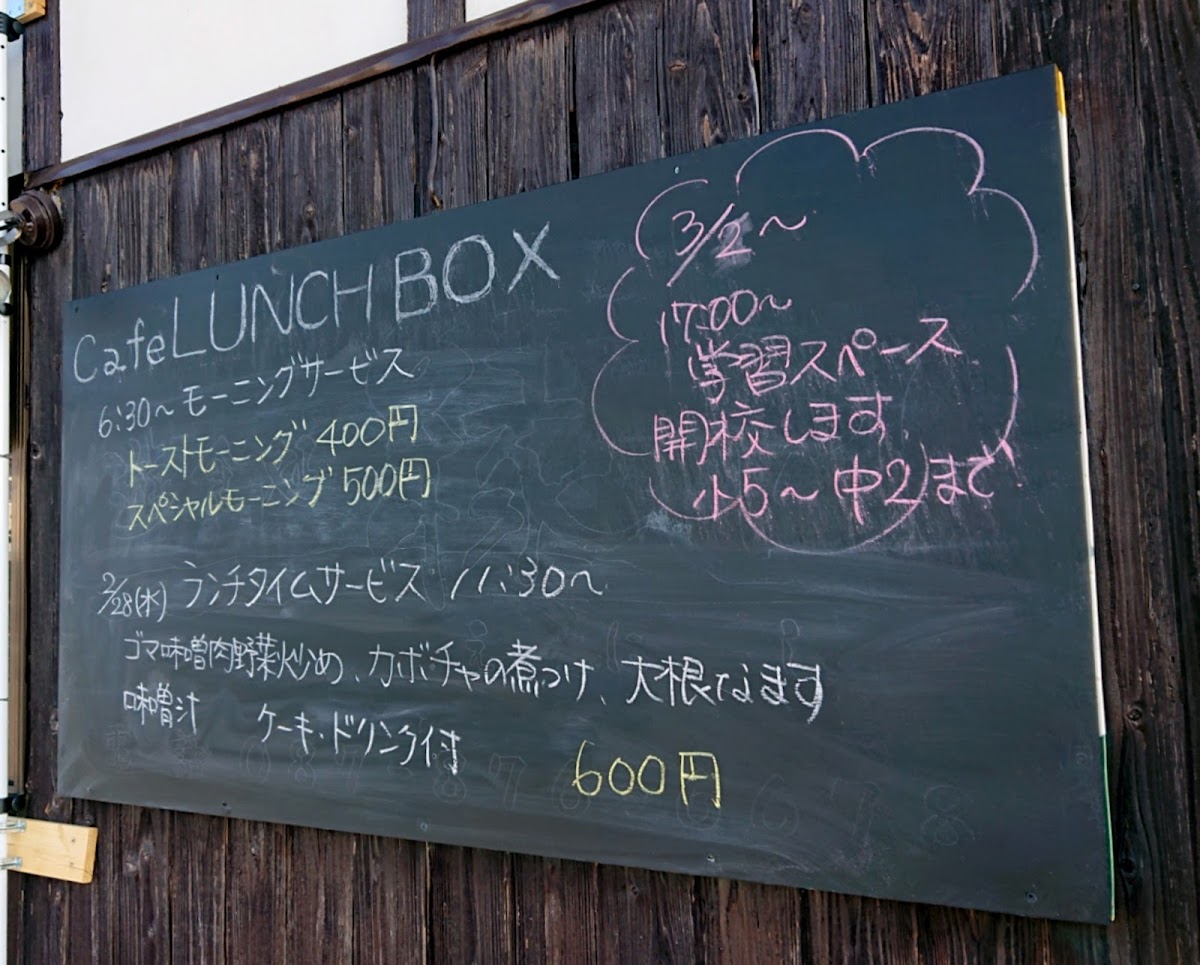 Cafe LUNCH BOX
6:30～モーニングサービス
トーストモーニング 400円
スペシャルモーニング 500円
2/28(水) ランチタイムサービス 11:30～
ゴマ味噌肉野菜炒め、カボチャの煮つけ、大根なます
味噌汁 ケーキ・ドリンク付
600円
3/2～
17:00～
学習スペース
開校します
小5～中2まで